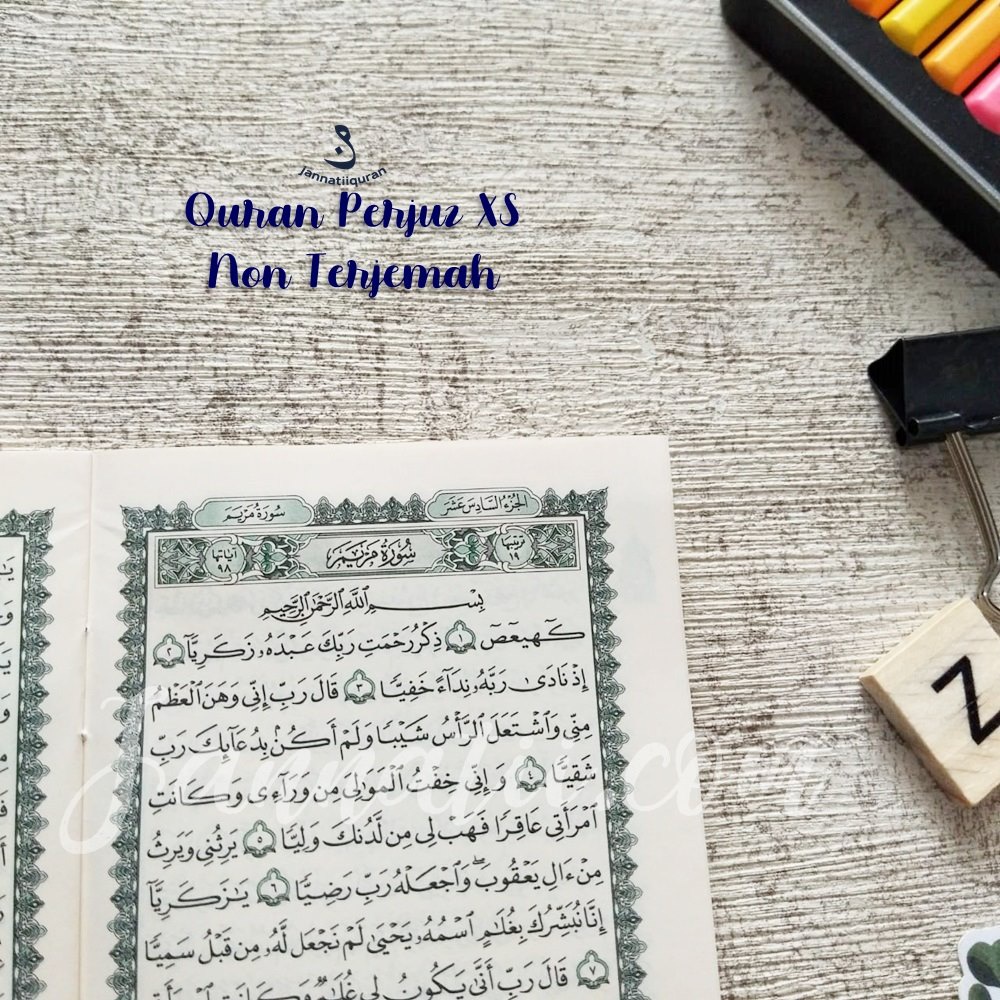 Jannatiiquran
Quran Perjuz XS
Non Terjemah
الجُزءُ السَّادِسَ عَشَرَ
سُورَةُ مَرْيَم
ترتيبها ١٩
سُورَةُ مَرْيَم
آياتها ٩٨
بِسْمِ ٱللَّهِ ٱلرَّحْمَٰنِ ٱلرَّحِيمِ
كٓهيعٓصٓ ١ ذِكْرُ رَحْمَتِ رَبِّكَ عَبْدَهُۥ زَكَرِيَّآ ٢
إِذْ نَادَىٰ رَبَّهُۥ نِدَآءً خَفِيًّا ٣ قَالَ رَبِّ إِنِّي وَهَنَ ٱلْعَظْمُ
مِنِّي وَٱشْتَعَلَ ٱلرَّأْسُ شَيْبًا وَلَمْ أَكُنۢ بِدُعَآئِكَ رَبِّ
شَقِيًّا ٤ وَإِنِّي خِفْتُ ٱلْمَوَٰلِيَ مِن وَرَآءِي وَكَانَتِ
ٱمْرَأَتِي عَاقِرًا فَهَبْ لِي مِن لَّدُنكَ وَلِيًّا ٥ يَرِثُنِي وَيَرِثُ
مِنْ ءَالِ يَعْقُوبَۖ وَٱجْعَلْهُ رَبِّ رَضِيًّا ٦ يَٰزَكَرِيَّآ
إِنَّا نُبَشِّرُكَ بِغُلَٰمٍ ٱسْمُهُۥ يَحْيَىٰ لَمْ نَجْعَل لَّهُۥ مِن قَبْلُ سَمِيًّا
٧ قَالَ رَبِّ أَنَّىٰ يَكُونُ لِي غُلَٰمٌ وَكَانَتِ ٱمْرَأَتِي
Jannatii.com
Z